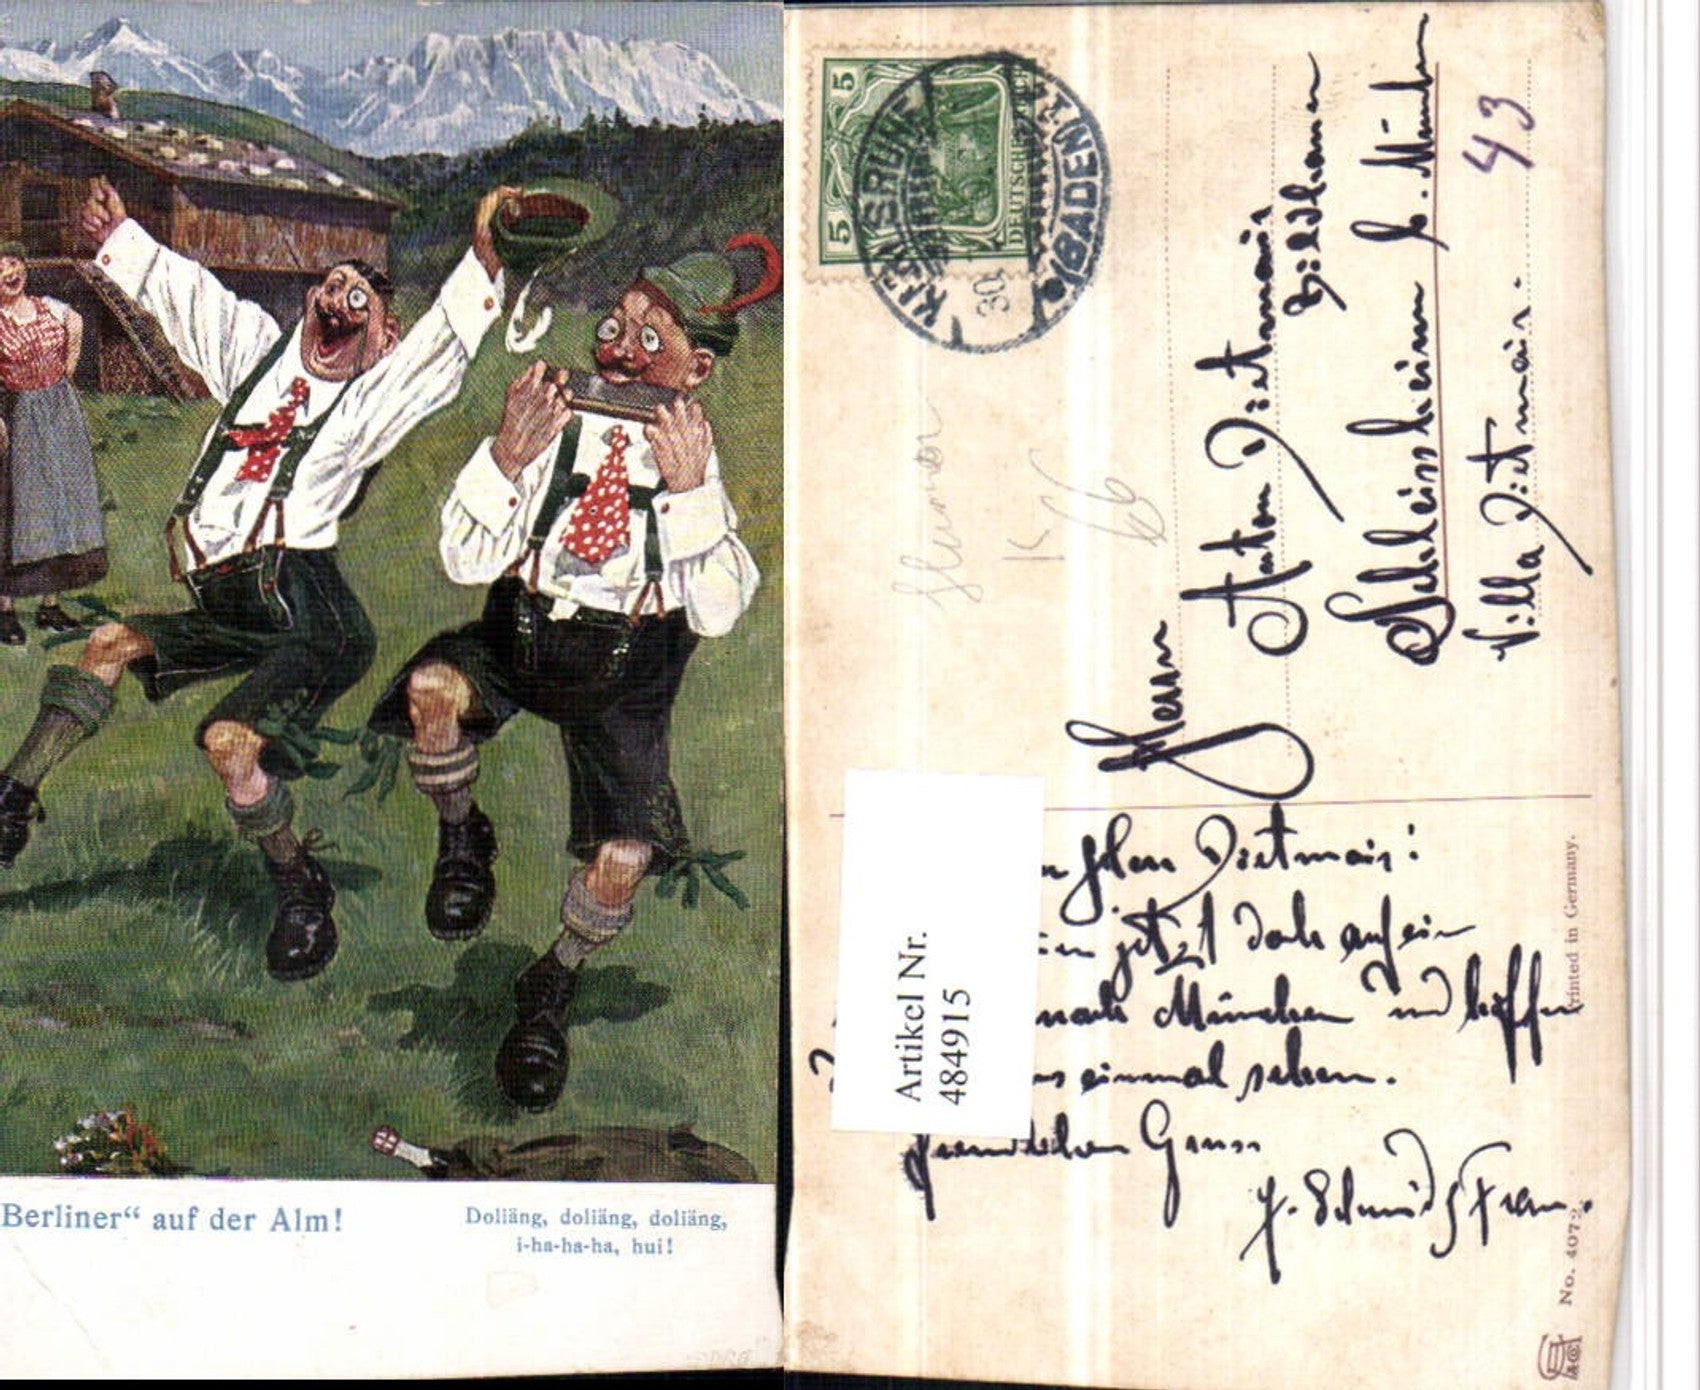 Berliner“ auf der Alm!
Doliäng, doliäng, doliäng,
i-ha-ha-ha, hui!
5 5
DEUTSCHES
KARLSRUHE
(BADEN)
30
Herrn
Anton Dietmair
Bildhauer
Schleissheim b. München
Villa Dietmair.
43
66
Artikel Nr.
4849915
Dietmair!
jetzt doch auf ein
nach München und hoffen
einmal sehen.
freundlichen Gruss
J. Schmid & Frau.
Printed in Germany.
No. 4072.